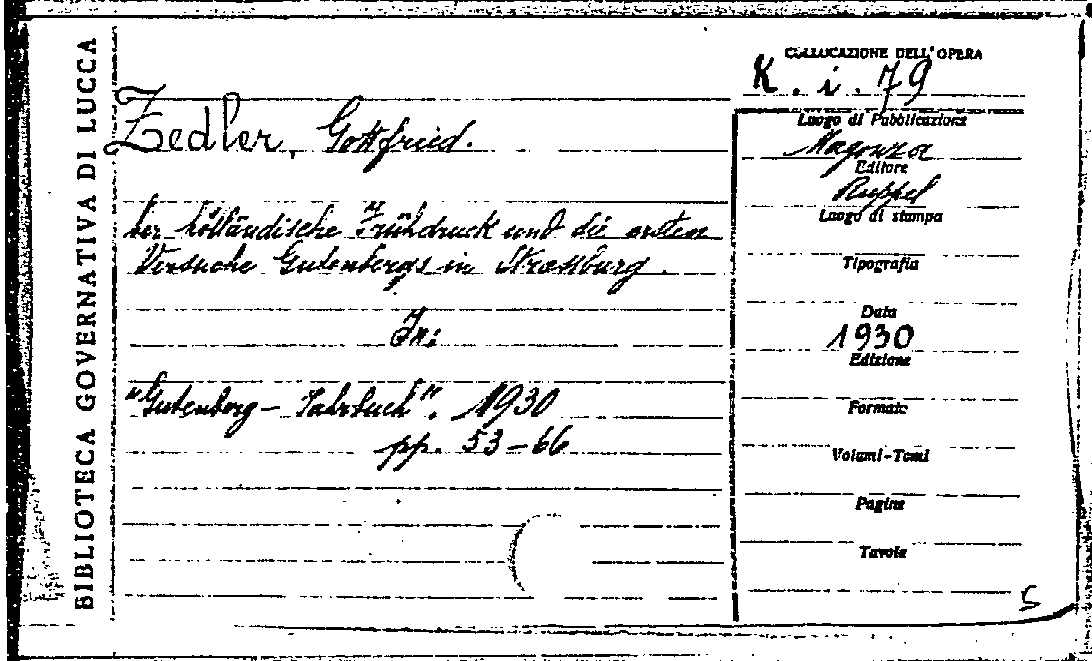 BIBLIOTECA GOVERNATIVA DI LUCCA
COLLOCAZIONE DELL'OPERA
K. i. 79
Zedler, Gottfried.
holländische Frühdruck und die ersten
Versuche Gutenbergs in Strassburg.
In:
"Gutenberg - Jahrbuch". 1930
pp. 53-66
Luogo di Pubblicazione
Magonza
Editore
Ruppel
Luogo di stampa
Tipografia
Data
1930
Edizione
Formato
Volumi-Tomi
Pagine
Tavole
5